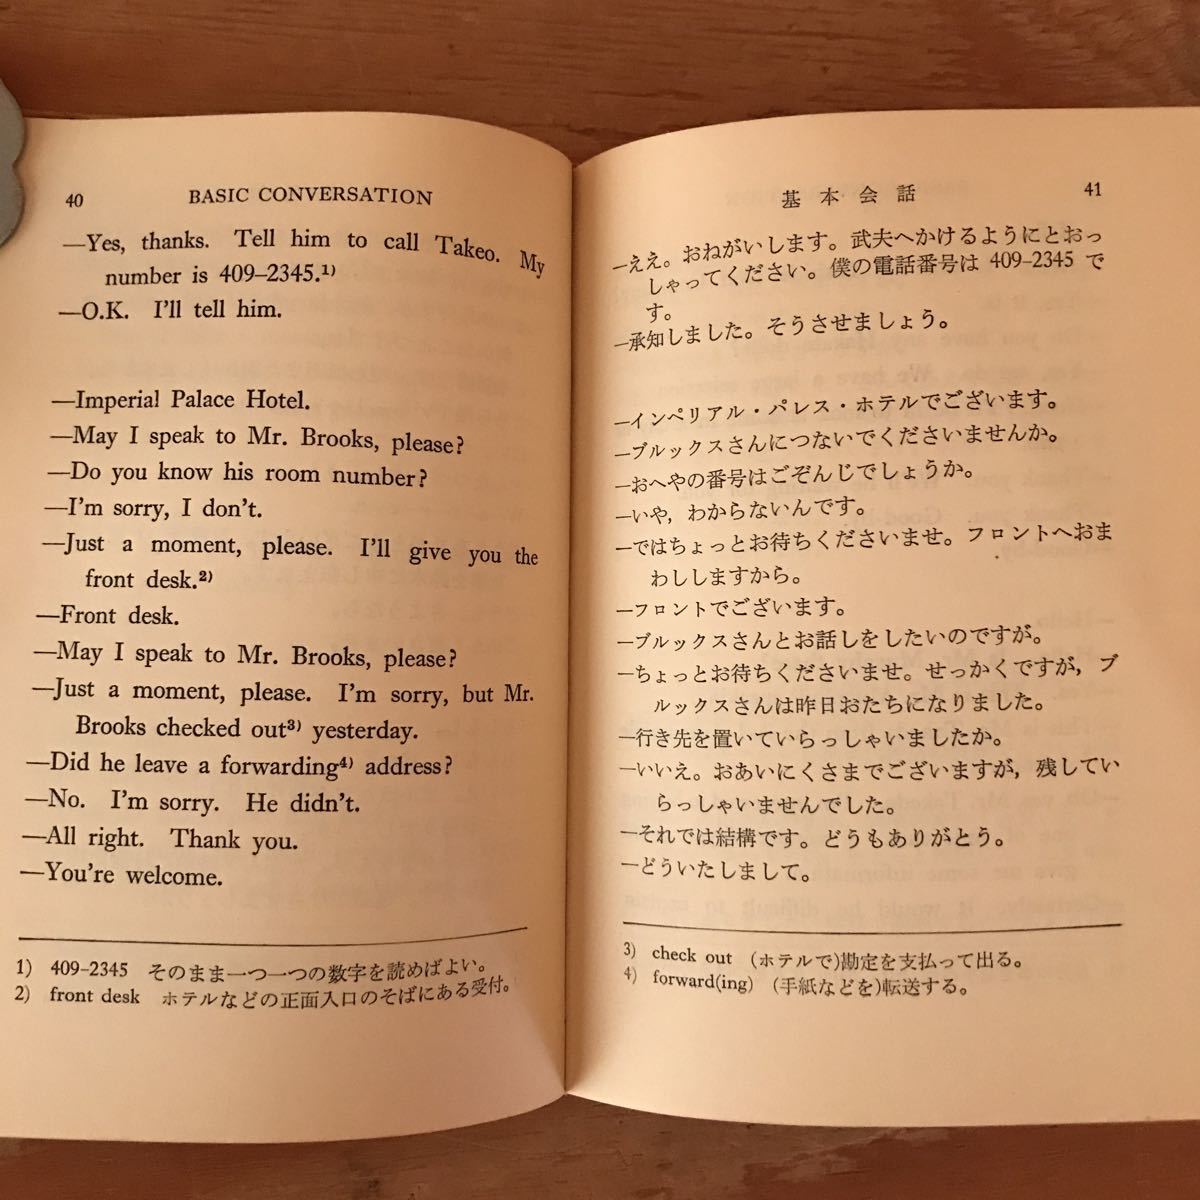 40
BASIC CONVERSATION
—Yes, thanks. Tell him to call Takeo. My
number is 409–2345.1)
—O.K. I'll tell him.
—Imperial Palace Hotel.
—May I speak to Mr. Brooks, please?
—Do you know his room number?
—I'm sorry, I don't.
—Just a moment, please. I'll give you the
front desk.2)
—Front desk.
—May I speak to Mr. Brooks, please?
—Just a moment, please. I'm sorry, but Mr.
Brooks checked out3) yesterday.
—Did he leave a forwarding4) address?
—No. I'm sorry. He didn't.
—All right. Thank you.
—You're welcome.
1) 409-2345 そのまま一つ一つの数字を読めばよい。
2) front desk ホテルなどの正面入口のそばにある受付。
基本会話
41
—ええ。おねがいします。武夫へかけるようにとおっ
しゃってください。僕の電話番号は 409–2345 で
す。
—承知しました。そうさせましょう。
—インペリアル・パレス・ホテルでございます。
—ブルックスさんにつないでくださいませんか。
—おへやの番号はごぞんじでしょうか。
—いや，わからないんです。
—ではちょっとお待ちくださいませ。フロントへおま
わししますから。
—フロントでございます。
—ブルックスさんとお話しをしたいのですが。
—ちょっとお待ちくださいませ。せっかくですが，ブ
ルックスさんは昨日おたちになりました。
—行き先を置いていらっしゃいましたか。
—いいえ。おあいにくさまでございますが，残してい
らっしゃいませんでした。
—それでは結構です。どうもありがとう。
—どういたしまして。
3) check out (ホテルで)勘定を支払って出る。
4) forward(ing) (手紙などを)転送する。